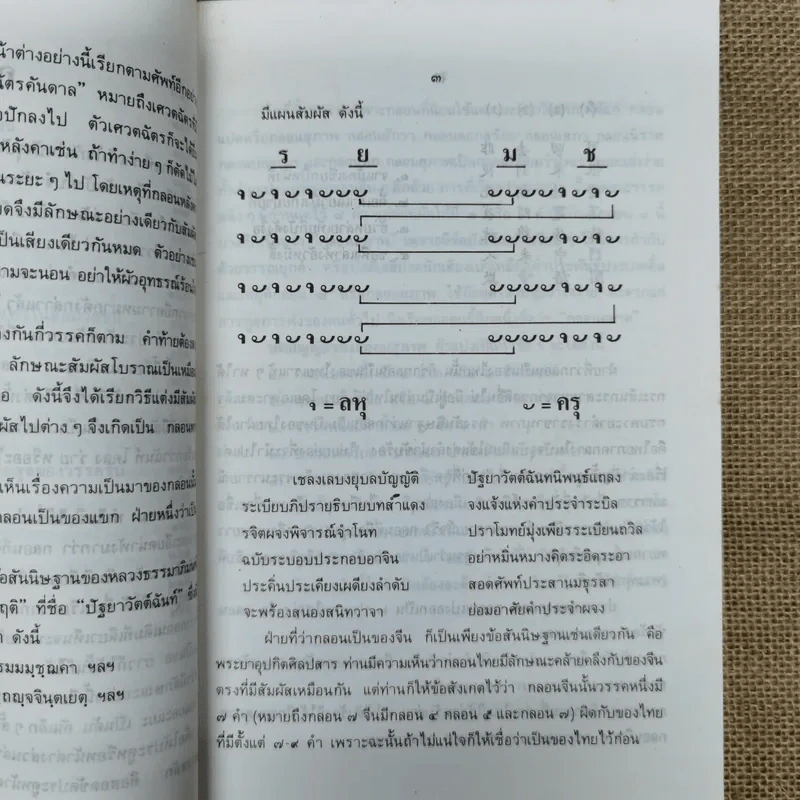 น้าต่างอย่างนี้เรียกตามศัพท์อีกอย่าง
ฉัตรคันดาล” หมายถึงเศวตฉัตรที่
ปักลงไป ตัวเศวตฉัตรก็จะได้
หลังคาเช่น ถ้าทำง่าย ๆ ก็ตัดไม้
นระยะ ๆ ไป โดยเหตุที่กลอนหลัง
ดจึงมีลักษณะอย่างเดียวกับสัมผัส
เป็นเสียงเดียวกันหมด ตัวอย่างเช่น
ามจะนอน อย่าให้ผัวอุทธรณ์ร้อน
งกันกี่วรรคก็ตาม คำท้ายต้อง
ลักษณะสัมผัสโบราณเป็นเหมือน
อ ดังนี้จึงได้เรียกวิธีแต่งมีสัมผัส
ผัสไปต่าง ๆ จึงเกิดเป็น กลอนห
เห็นเรื่องความเป็นมาของกลอนนั้น
กลอนเป็นของแขก ฝ่ายหนึ่งว่าเป็น
ข้อสันนิษฐานของหลวงธรรมาภิมณฑ์
ฤติ” ที่ชื่อ “ปัฐยาวัตต์ฉันท์” ซึ่ง
า ดังนี้
รมมมฺชฺฌคา ฯลฯ
ฺถญฺจจินฺตเยตุ ฯลฯ
๓
มีแผนสัมผัส ดังนี้
ร ย ม ช
ๅ ั ๅ ั ั ั ั
ๅ = ลหุ ั = ครุ
เชลงเลบงยุบลบัญญัติ ปัฐยาวัตต์ฉันทนิพนธ์แถลง
ระเบียบภิปรายธิบายบทสำแดง จงแจ้งแห่งคำประจำระบิล
รจิตผจงพิจารณ์จำโนท ปราโมทย์มุ่งเพียรระเบียนถวิล
ฉบับระบอบประกอบอาจิน อย่าหมิ่นหมางคิดระอิดระอา
ประดิ่นประเดียงเผดียงลำดับ สอดศัพท์ประสานมธุรสา
จะพร้องสนองสนิทวาจา ย่อมอาศัยคำประจำผจง
ฝ่ายที่ว่ากลอนเป็นของจีน ก็เป็นเพียงข้อสันนิษฐานเช่นเดียวกัน คือ
พระยาอุปกิตศิลปสาร ท่านมีความเห็นว่ากลอนไทยมีลักษณะคล้ายคลึงกับของจีน
ตรงที่มีสัมผัสเหมือนกัน แต่ท่านก็ให้ข้อสังเกตไว้ว่า กลอนจีนนั้นวรรคหนึ่งมี
๗ คำ (หมายถึงกลอน ๗ จีนมีกลอน ๔ กลอน ๕ และกลอน ๗) ผิดกับของไทย
ที่มีตั้งแต่ ๗-๙ คำ เพราะฉะนั้นถ้าไม่แน่ใจก็ให้เชื่อว่าเป็นของไทยไว้ก่อน